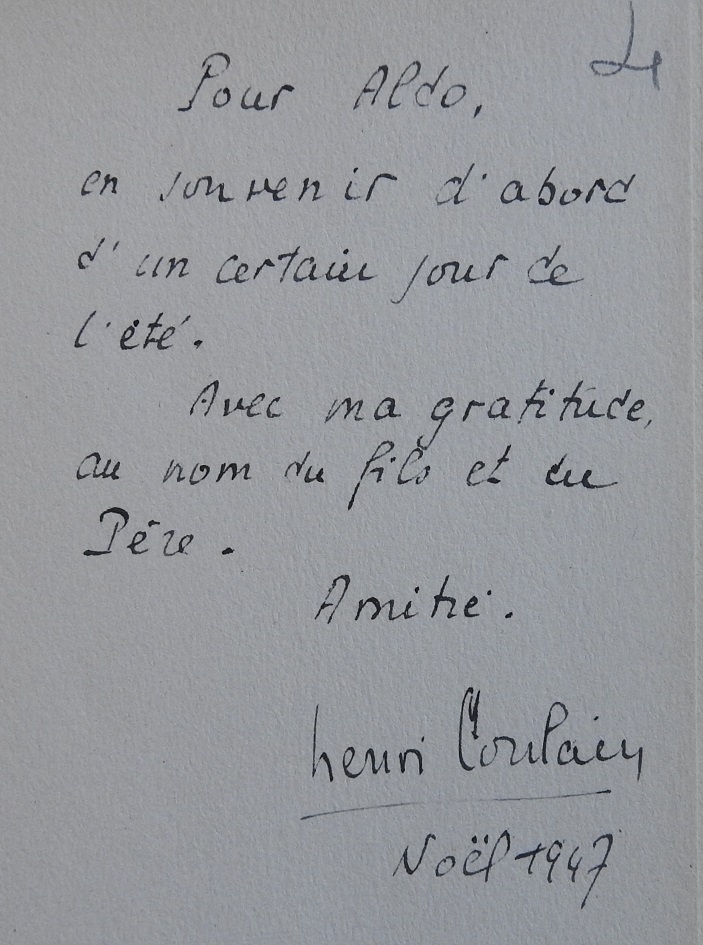 4
Pour Aldo,
en souvenir d'abord
d'un certain jour de
l'été.
Avec ma gratitude,
au nom du fils et du
Père.
Amitié.
henri Coulain
Noël 1947